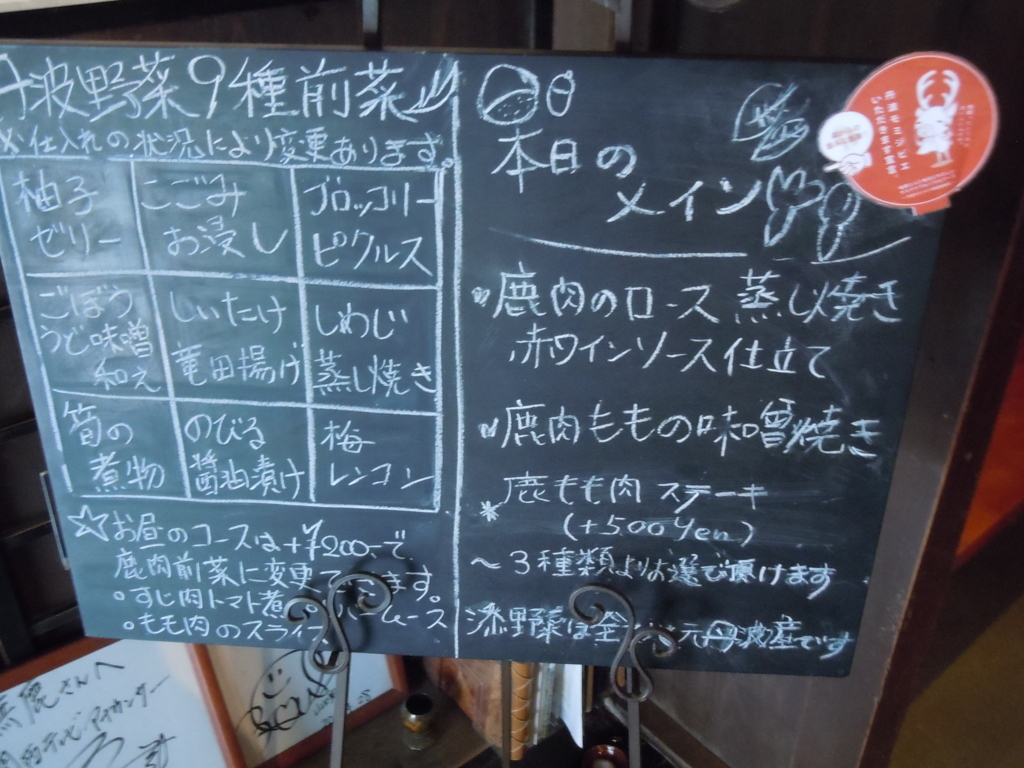 丹波野菜9種前菜
※仕入れの状況により変更あります。
柚子
ゼリー
こごみ
お浸し
ブロッコリー
ピクルス
ごぼう
うど味噌
和え
しいたけ
竜田揚げ
しめじ
蒸し焼き
筍の
煮物
のびる
醤油漬け
梅
レンコン
☆お昼のコースは+¥200.で
鹿肉前菜に変更できます。
・すじ肉トマト煮 ムース
・もも肉のスライ
本日の
メイン
鹿肉のロース 蒸し焼き
赤ワインソース仕立て
鹿肉ももの味噌焼き
* 鹿もも肉 ステーキ
(+500yen)
~3種類よりお選び頂けます
野菜は全 元丹波産です
丹波モミジビエ
いただきます宣言。
無鹿さんへ
関西テレビ・アナウンサー